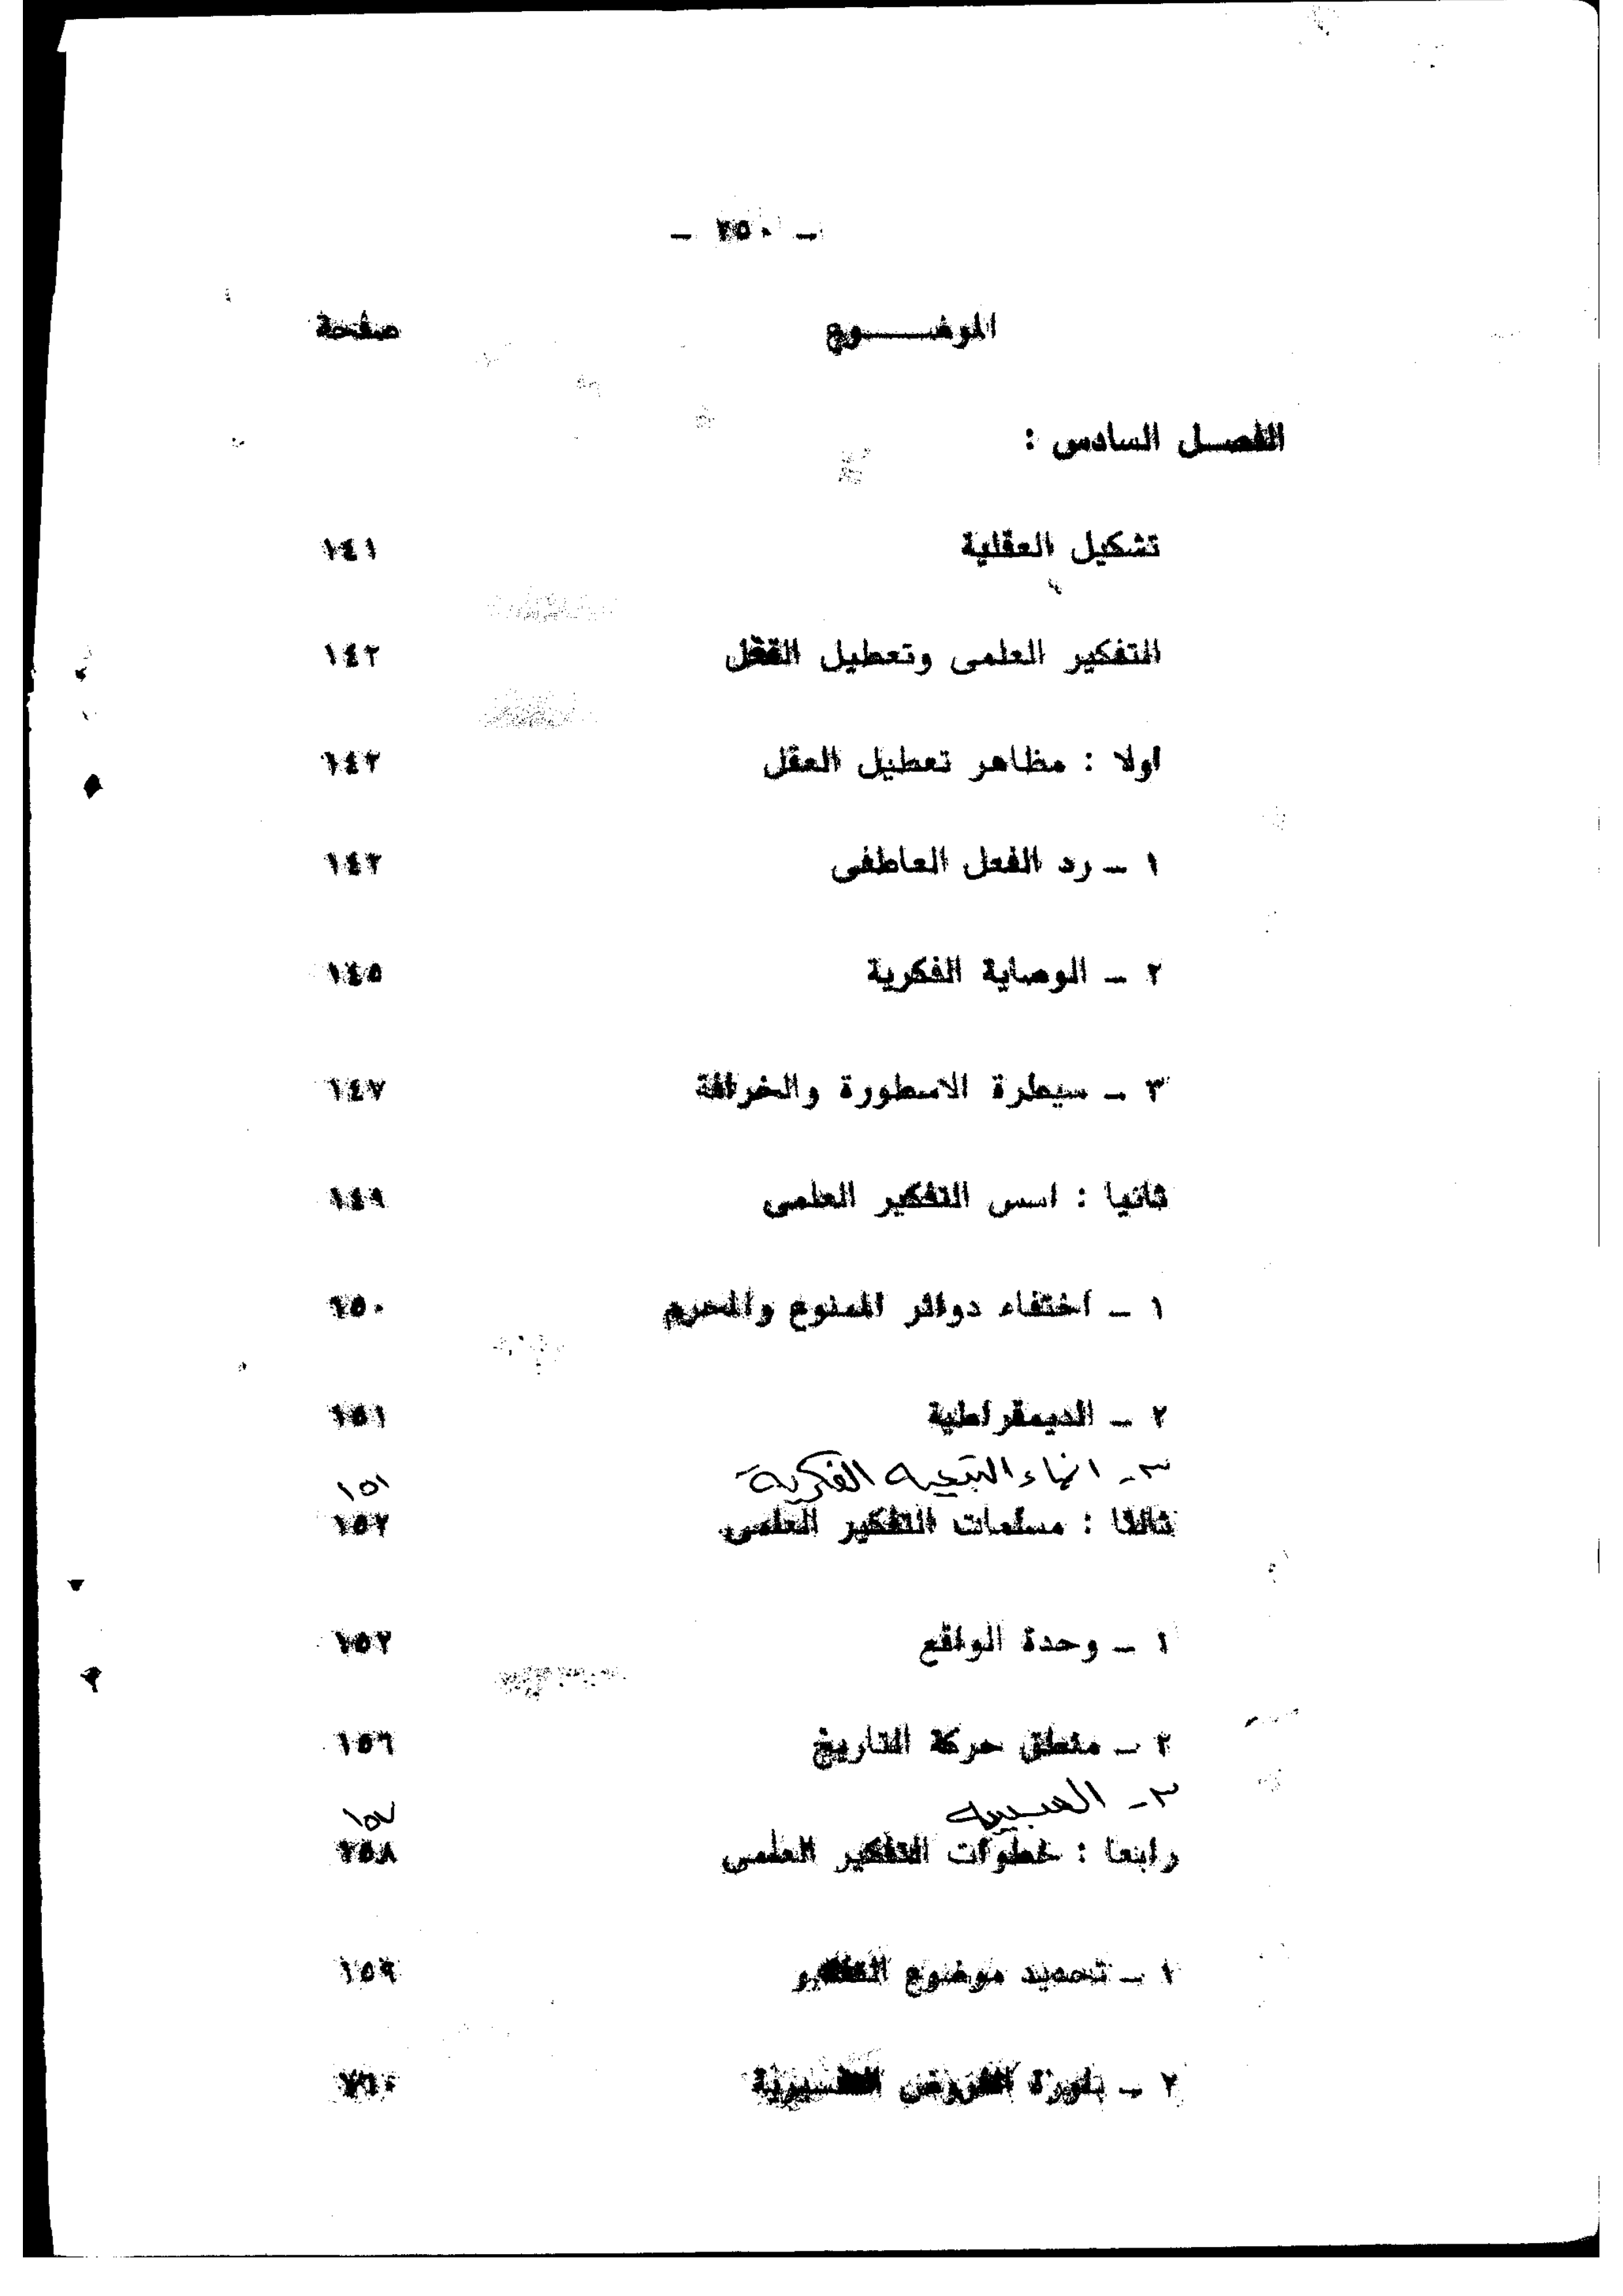 - ٢٥٠ -
الموضـــــوع صفحة
الفصـل السادس :
تشكيل العقلية ١٤١
التفكير العلمى وتعطيل العقل ١٤٢
اولا : مظاهر تعطيل العقل ١٤٢
١ - رد الفعل العاطفى ١٤٢
٢ - الوصاية الفكرية ١٤٥
٣ - سيطرة الاسطورة والخرافة ١٤٧
ثانيا : اسس التفكير العلمى ١٤٩
١ - اختفاء دوائر الممنوع والمحرم ١٥٠
٢ - الديمقراطية ١٥١
٣- انهاء التبعيه الفكرية ١٥١
ثالثا : مسلمات التفكير العلمى ١٥٢
١ - وحدة الواقع ١٥٢
٢ - منطق حركة التاريخ ١٥٦
٣- السببيه ١٥٧
رابعا : خطوات التفكير العلمى ١٥٨
١ - تحديد موضوع التفكير ١٥٩
٢ - بلورة الفروض التفسيرية ١٦٠